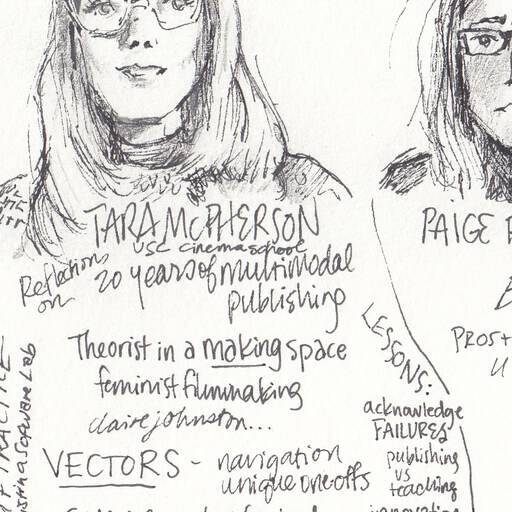 TARA MCPHERSON
USC cinema school
Reflections on
20 years of multimodal
publishing
Theorist in a making space
feminist filmmaking
claire johnston...
VECTORS - navigation
unique one-offs
LESSONS:
acknowledge
FAILURES
publishing
vs
teaching
innovation
PAIGE